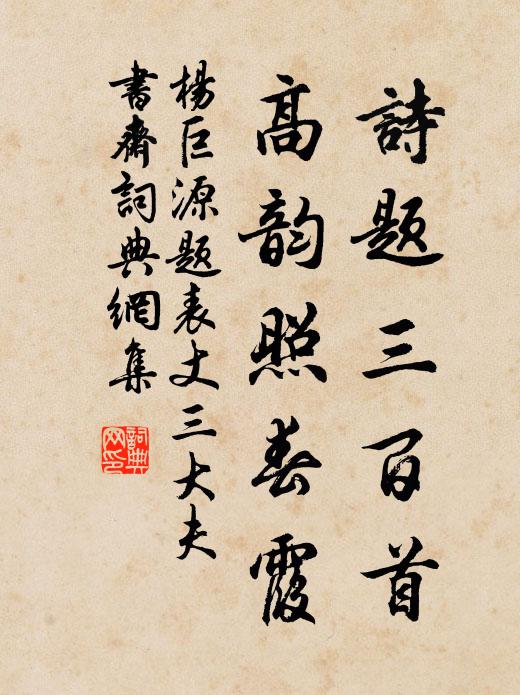 詩題三百首
高韵照春霞
楊巨源題表丈三大夫
書齋詞典網集
詞典
网印